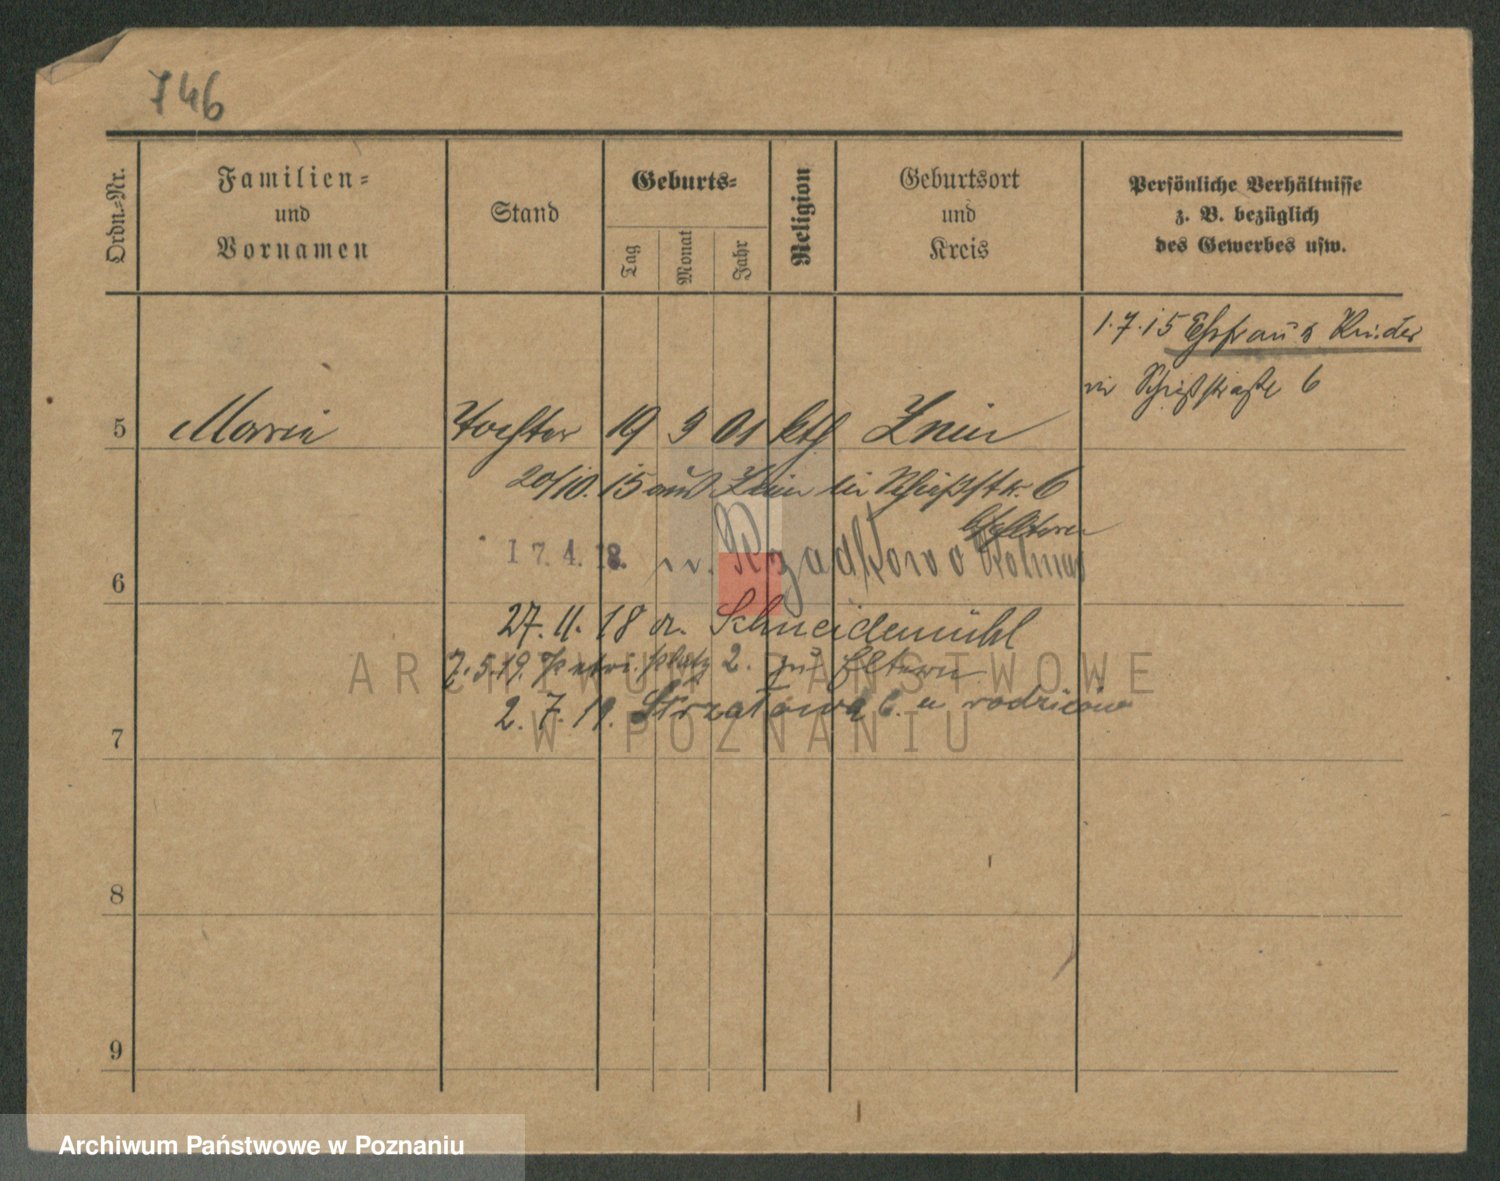 746
Ordn.-Nr.
Familien-
und
Vornamen
Stand
Geburts-
Tag
Monat
Jahr
Religion
Geburtsort
und
Kreis
Persönliche Verhältnisse
z. B. bezüglich
des Gewerbes usw.
1.7.15 Ehefrau & Kinder
in Schießstraße 6
5 Marie Tochter 19 9 01 kth Znin
20/10.15 aus Znin in Schießstr. 6
b/Eltern
17.4.18. n. Rzadkowo Kolmar
6
27.11.18 a. Schneidemühl
7.5.19. Petriplatz 2. zu Eltern
2.7.19. Strzałowa 6. u rodziców
7
8
9
ARCHIWUM PAŃSTWOWE
W POZNANIU
Archiwum Państwowe w Poznaniu